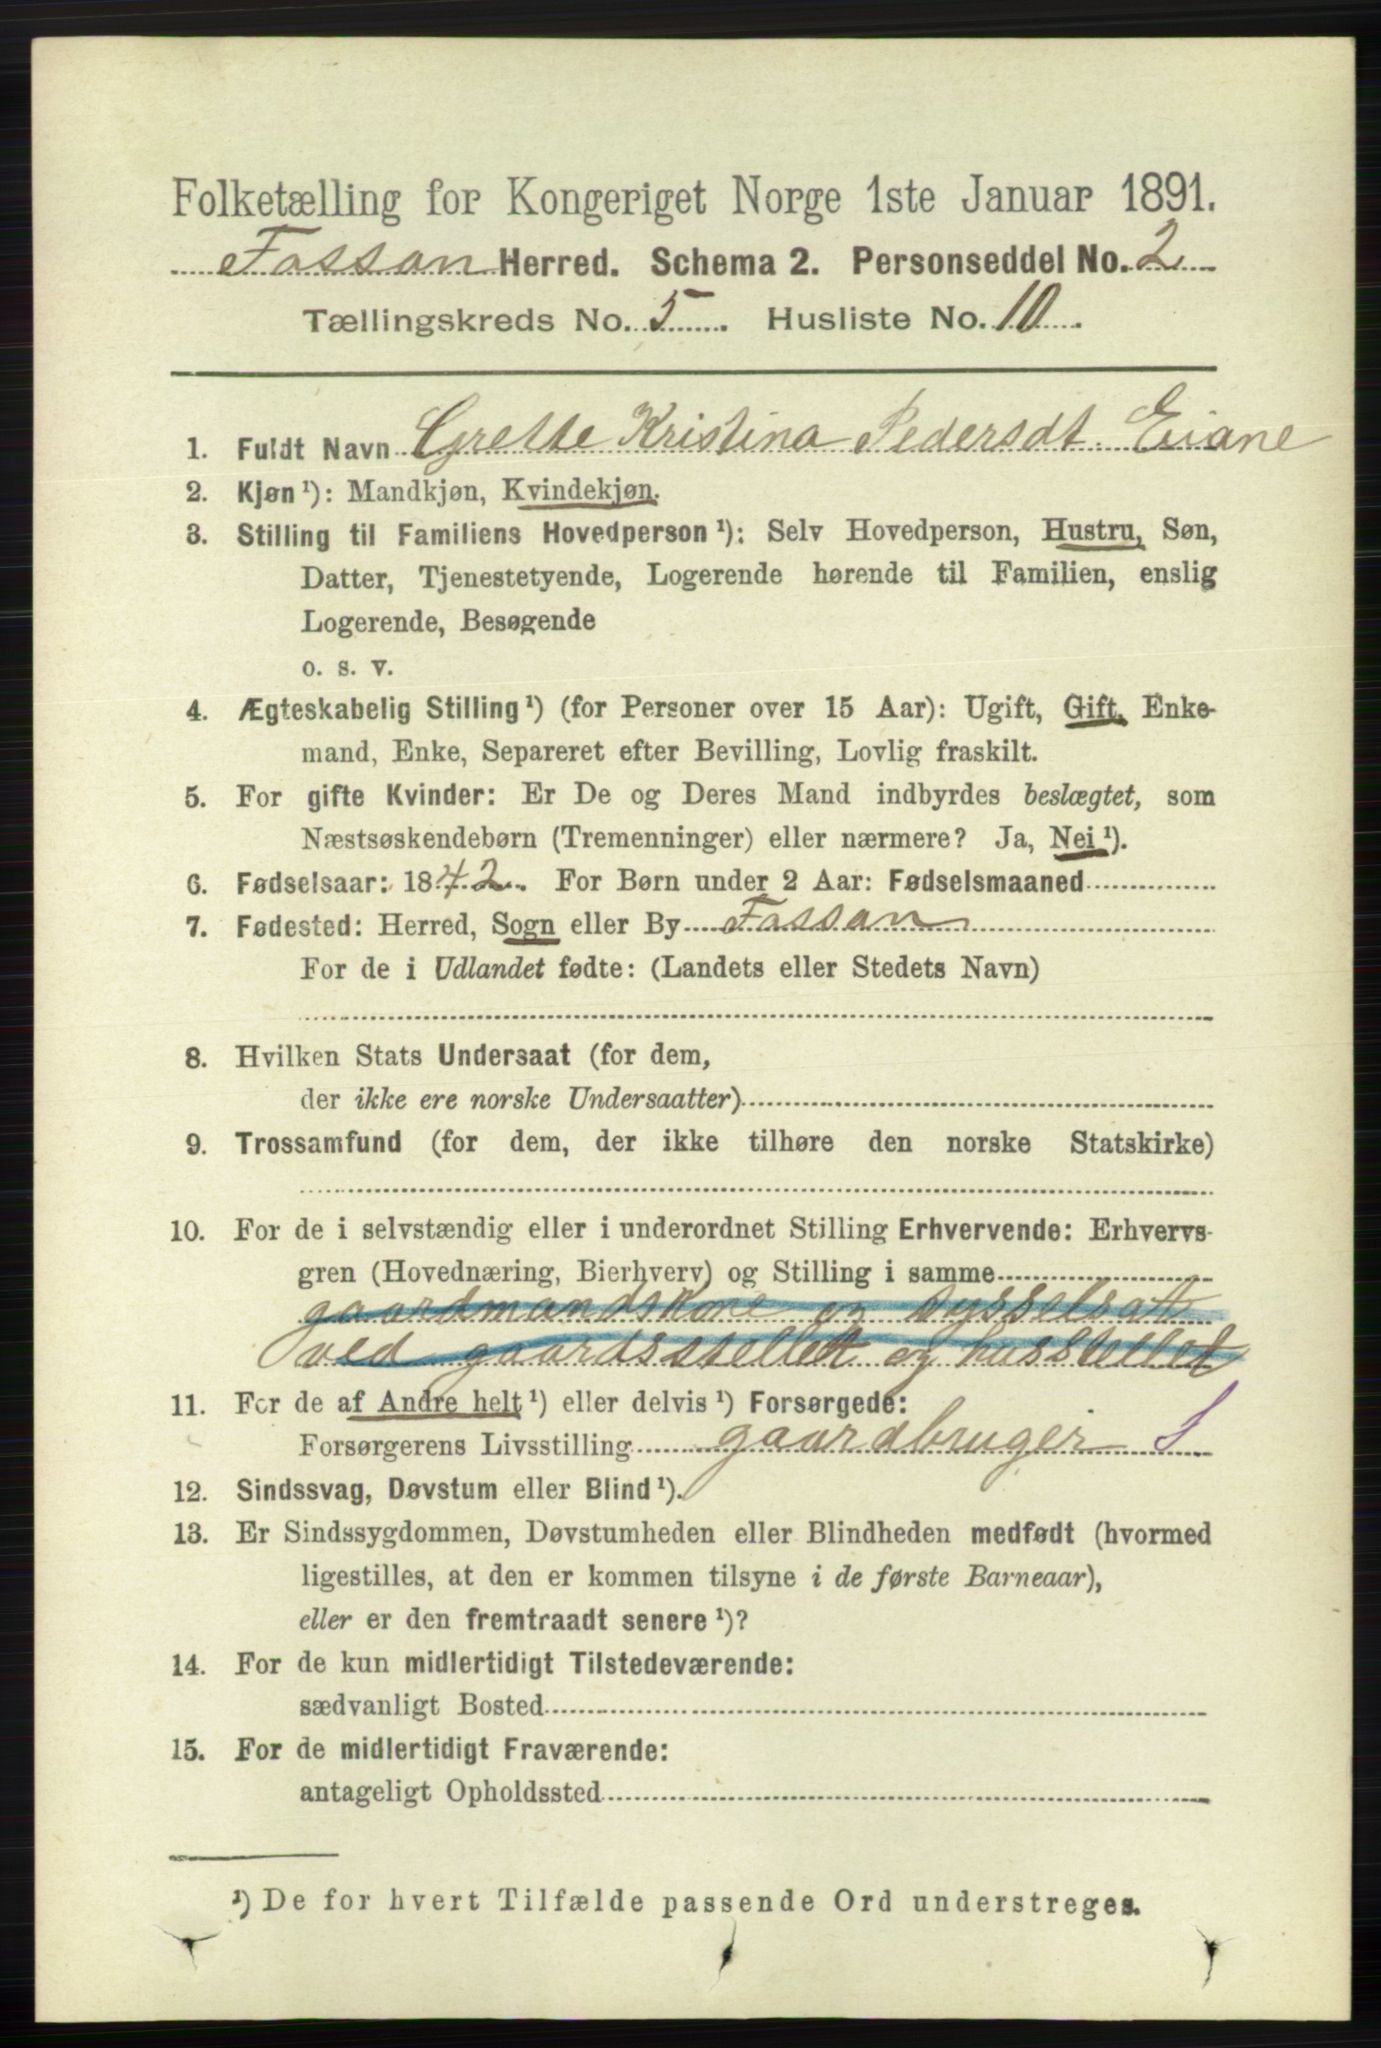 Folketælling for Kongeriget Norge 1ste Januar 1891.
Fossan Herred. Schema 2. Personseddel No. 2
Tællingskreds No. 5. Husliste No. 10.
1. Fuldt Navn Grethe Kristina Pedersdt. Eiane
2. Kjøn ¹): Mandkjøn, Kvindekjøn.
3. Stilling til Familiens Hovedperson ¹): Selv Hovedperson, Hustru, Søn,
Datter, Tjenestetyende, Logerende hørende til Familien, enslig
Logerende, Besøgende
o. s. v.
4. Ægteskabelig Stilling ¹) (for Personer over 15 Aar): Ugift, Gift, Enke-
mand, Enke, Separeret efter Bevilling, Lovlig fraskilt.
5. For gifte Kvinder: Er De og Deres Mand indbyrdes beslægtet, som
Næstsøskendebørn (Tremenninger) eller nærmere? Ja, Nei ¹).
6. Fødselsaar: 1842. For Børn under 2 Aar: Fødselsmaaned
7. Fødested: Herred, Sogn eller By Fossan
For de i Udlandet fødte: (Landets eller Stedets Navn)
8. Hvilken Stats Undersaat (for dem,
der ikke ere norske Undersaatter)
9. Trossamfund (for dem, der ikke tilhøre den norske Statskirke)
10. For de i selvstændig eller i underordnet Stilling Erhvervende: Erhvervs-
gren (Hovednæring, Bierhverv) og Stilling i samme
gaardmandskone og sysselsatt
ved gaardsstellet og husstellet
11. For de af Andre helt ¹) eller delvis ¹) Forsørgede:
Forsørgerens Livsstilling gaardbruger S
12. Sindssvag, Døvstum eller Blind ¹).
13. Er Sindssygdommen, Døvstumheden eller Blindheden medfødt (hvormed
ligestilles, at den er kommen tilsyne i de første Barneaar),
eller er den fremtraadt senere ¹)?
14. For de kun midlertidigt Tilstedeværende:
sædvanligt Bosted
15. For de midlertidigt Fraværende:
antageligt Opholdssted
¹) De for hvert Tilfælde passende Ord understreges.